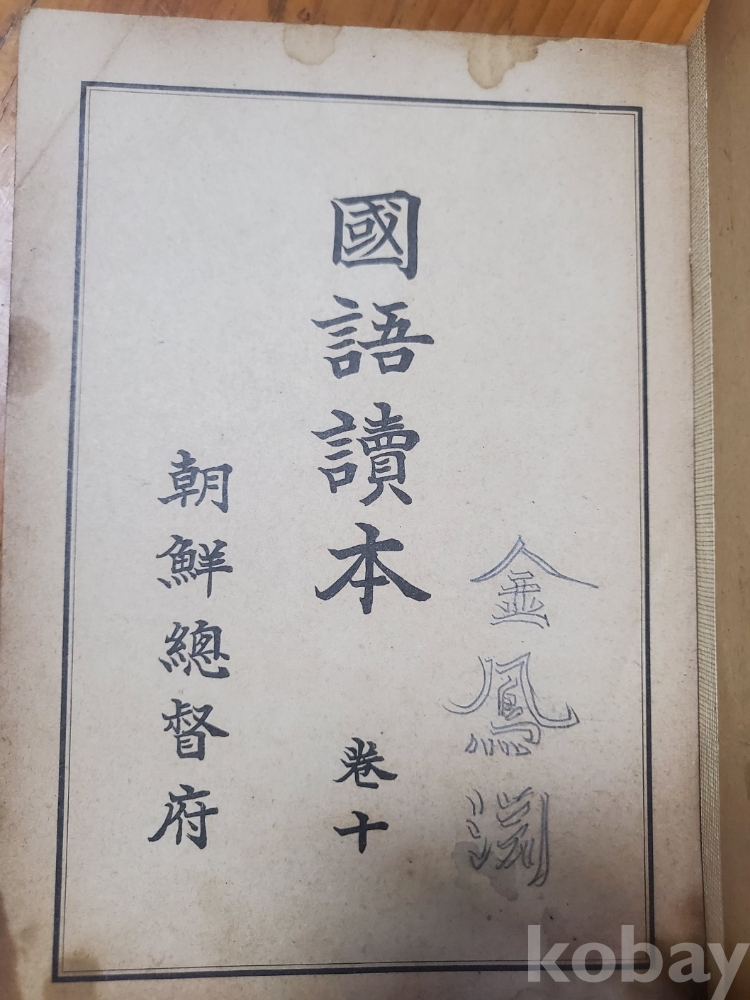 金鳳渕
國語讀本 卷十
朝鮮總督府
kobay